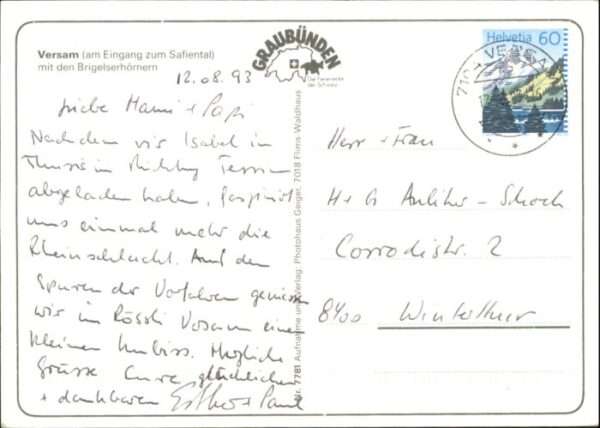 Versam (am Eingang zum Safiental)
mit den Brigelserhörnern
GRAUBÜNDEN
Die Ferienecke
der Schweiz
Helvetia 60
12.08.93
Liebe Mami + Papi
Nachdem wir Isabel in
Thusis in Richtung Tessin
abgeladen haben, fasziniert
uns einmal mehr die
Rheinschlucht. Auf den
Spuren der Vorfahren geniessen
wir im Rössli Versam einen
kleinen Imbiss. Herzliche
Grüsse Eure glücklichen
+ dankbaren Esther + Paul
Nr. 7781 Aufnahme und Verlag: Photohaus Geiger, 7018 Flims-Waldhaus
Herr + Frau
H + G Anliker - Schoch
Corrodistr. 2
8400 Winterthur